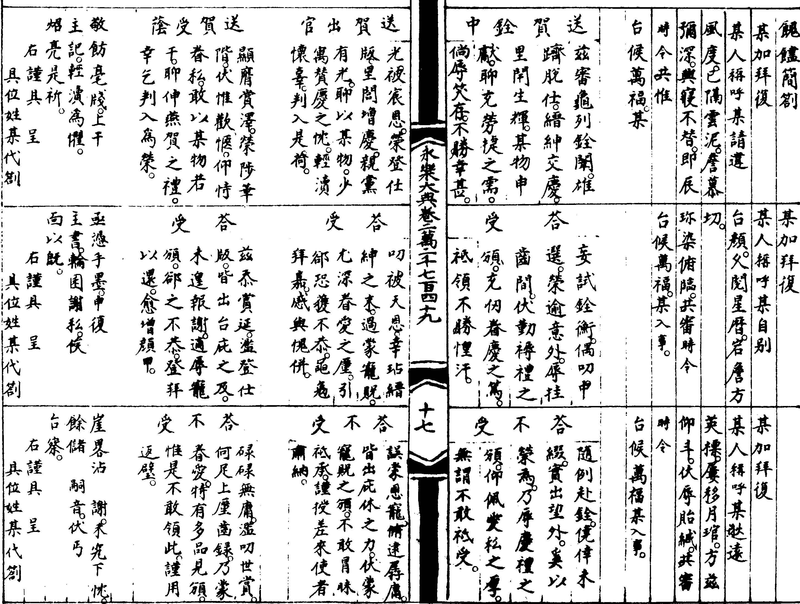 餽饋簡劄
某加拜復
某人稱呼某請違
風度已隔雲泥詹慕
彌深興寢不替即辰
時令共惟
台候萬福某
送賀銓中
茲審龜列銓闈雄
躋脫仕縉紳交慶
里閈生輝某物申
獻聊充勞捷之需
倘辱笑存不勝幸甚
某加拜復
某人稱呼某自別
台顏久閱星曆岩詹方
切
珍染俯臨共審時令
台候萬福某入事
答受
妄試銓衡偶叨中
選榮逾意外辱挂
齒間伏勤褥禮之
頒充仞眷慶之篤
祗領不勝惶汗
某加拜復
某人稱呼某欵遠
英標屢移月琯方茲
仰斗伏辱貽緘共審
時令
台候萬福某入事
答不受
隨例赴銓僥倖末
綴實出望外奚以
榮為乃辱慶禮之
頒仰佩愛私之厚
無謂不敢祗受
永樂大典卷二萬二千七百四十九
十七
送賀出官
光被宸恩榮登仕
版里閭增慶親黨
有光聊以某物少
寓贊慶之忱輕瀆
懷 判入是荷
送賀受蔭
顯膺賞澤榮陟華
階伏惟歡愜仰恃
眷私敢以某物若
干聊伸燕賀之禮
幸乞判入為榮
敬飭毫牋上干
主記輕瀆為懼
炤亮是祈
右謹具 呈
具位姓某代劄
答受
叨被天恩幸玷縉
紳之末過蒙寵貺
尤深眷愛之 引
卻恐獲不恭黽勉
拜嘉感興愧併
答受
茲忝賞延濫登仕
版皆出台庇之及
未遑報謝遽辱寵
頒卻之不恭登拜
以還愈增顏甲
亟憑手墨申復
主書輪囷謝私候
面以既
右謹具 呈
具位姓某代劄
答不受
誤蒙恩寵脩途辱 
皆出庇休之力伏蒙
寵貺之頒不敢冒昧
祗承謹復差來使者
 納
答不受
碌碌無庸濫叨世賞
何足上厘齒錄乃蒙
眷寵特有多品見頒
惟是不敢領此謹用
返璧
崖畧沾 謝未究下忱
餘儲 嗣音伏丐
台察
右謹具 呈
具位姓某代劄